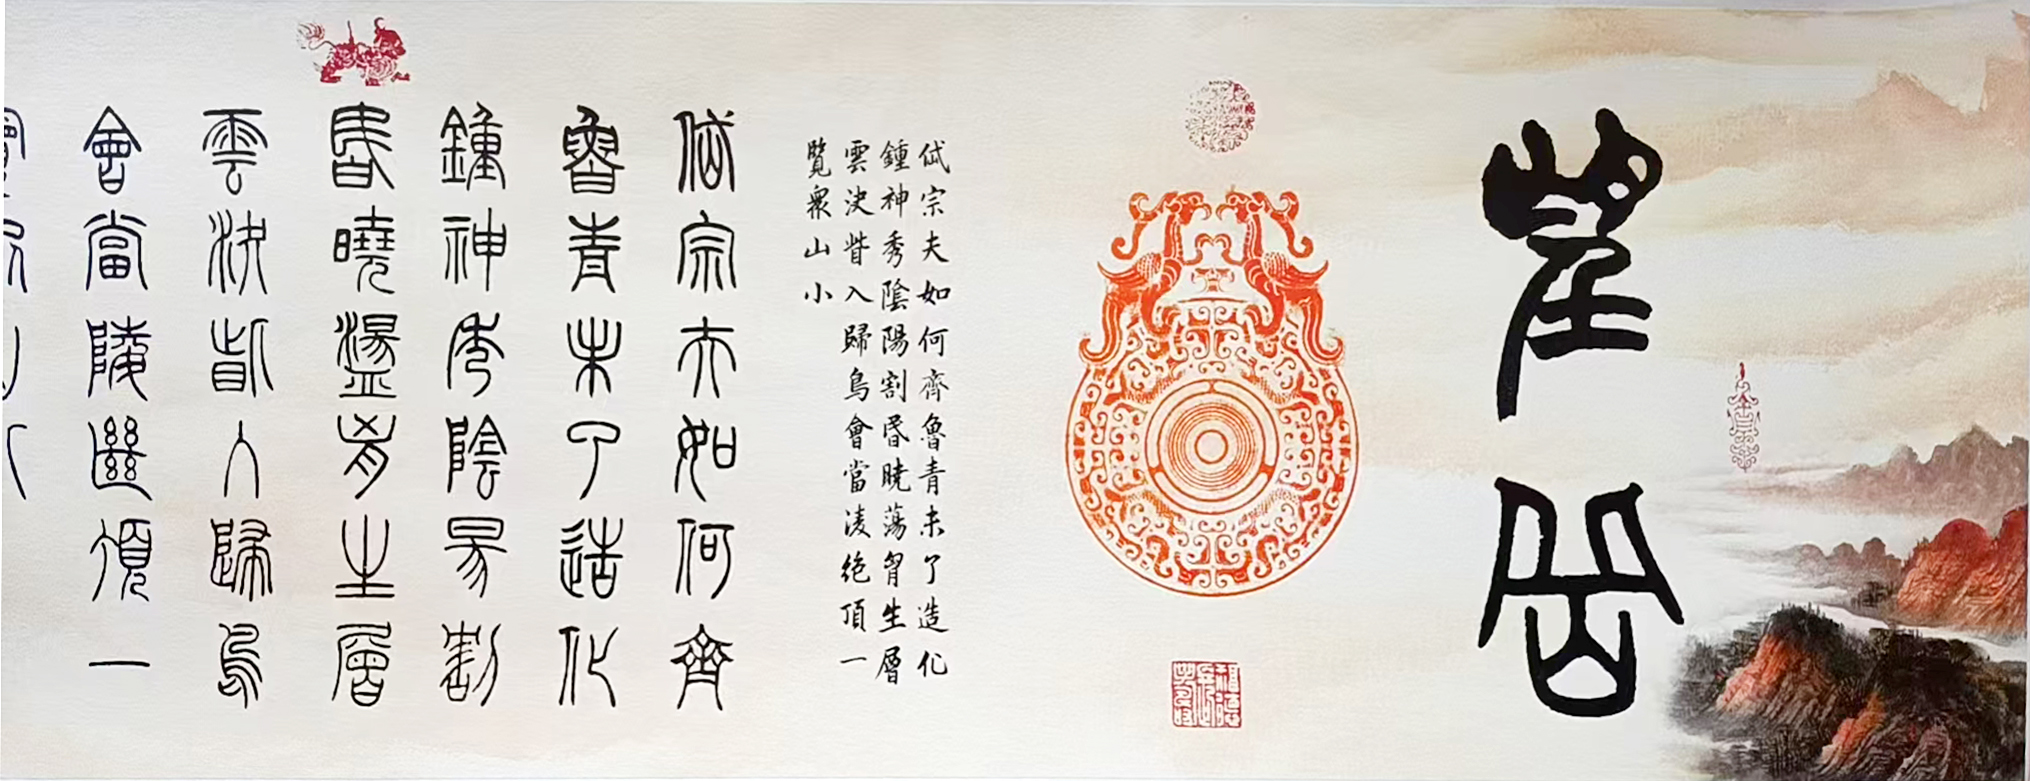 望岳
岱宗夫如何齊魯青未了造化
鍾神秀陰陽割昏曉蕩胷生層
雲決眥入歸鳥會當凌絶頂一
覽衆山小
岱宗夫如何齊
魯青未了造化
鍾神秀陰陽割
昏曉盪胷生層
雲決眥入歸鳥
會當陵絕頂一